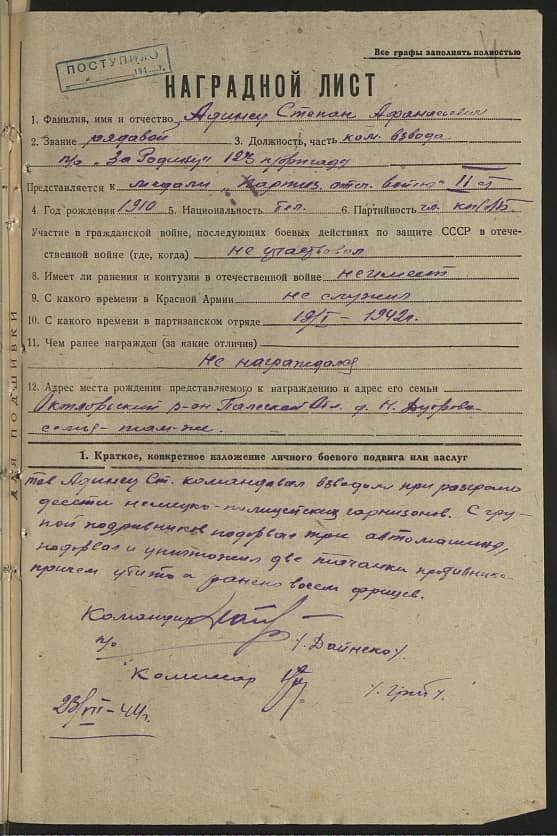 Все графы заполнять полностью
ПОСТУПИЛО
НАГРАДНОЙ ЛИСТ
1. Фамилия, имя и отчество Адинец Степан Афанасович
2. Звание рядавой 3. Должность, часть ком. взвода
п/о "За Родину" 123 п/бригады
Представляется к медали "Партиз. отеч. войны" II ст
4. Год рождения 1910 5. Национальность бел. 6. Партийность чл. кп/б/Б.
Участие в гражданской войне, последующих боевых действиях по защите СССР в отече-
ственной войне (где, когда) не участвовал
8. Имеет ли ранения и контузии в отечественной войне не имеет
9. С какого времени в Красной Армии не служил
10. С какого времени в партизанском отряде 19/I - 1942г.
11. Чем ранее награжден (за какие отличия)
не награждался
12. Адрес места рождения представляемого к награждению и адрес его семьи
Октябрьский р-он Палеская обл. д. Н. Дуброва
семья - там-же.
ДЛЯ ПОДШИВКИ
1. Краткое, конкретное изложение личного боевого подвига или заслуг
тов Адинец Ст. командовал взводом при разгроме
десяти немецко-полицейских гарнизонов. С гру-
пой подрывников подорвал три автомашины,
подорвал и уничтожил две тачанки противника
причем убито и ранено восем фрицев.
Командир
п/о /Дайнеко/.
Комиссар /Гриб/.
23/VII-44г.